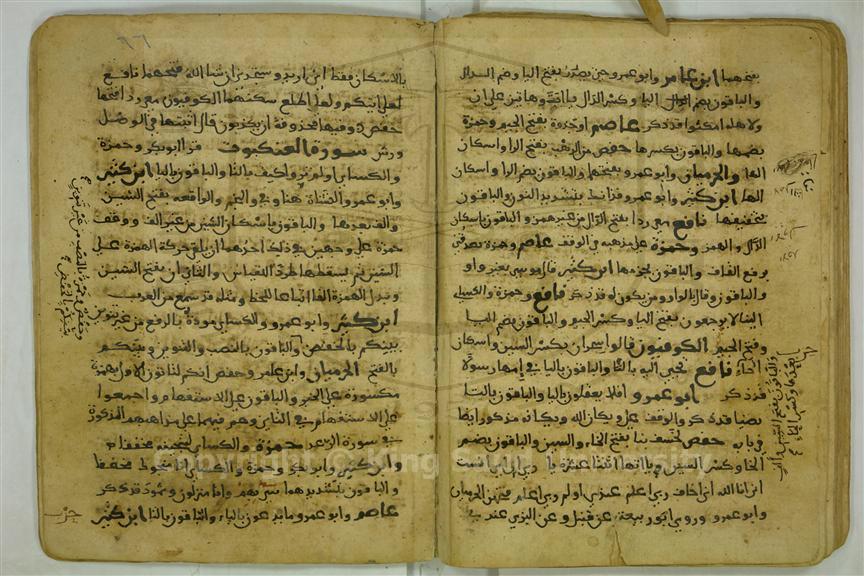 بفتحهما ابن عامر وابو عمرو حتى يصدر بفتح اليا وضم الدال
والباقون بضم اليا وكسر الدال يا ابت وهاتين على ان
ولاهله امكثوا قد ذكر عاصم او جذوة بفتح الجيم وحمزة
بضمها والباقون بكسرها حفص من الرهب بفتح الرا واسكان
الها والحرميان وابو عمرو بفتحها والباقون بضم الرا واسكان
الها ابن كثير وابو عمرو فذانك بتشديد النون والباقون
بتخفيفها نافع معي ردا بفتح الدال من غير همز والباقون باسكان
الدال والهمز وحمزة على مذهبه في الوقف عاصم وحمزة يصدقني
برفع القاف والباقون بجزمها ابن كثير قال موسى بغير واو
والباقون وقال بالواو ومن يكون له قد ذكر نافع وحمزة والكسائي
الينا لا يرجعون بفتح اليا وكسر الجيم والباقون بضم اليا
وفتح الجيم الكوفيون قالوا سحران بكسر السين واسكان
الحاء نافع تجبى اليه بالتا والباقون باليا في امها رسولا
قد ذكر ابو عمرو افلا يعقلون باليا والباقون بالتا
بضيا قد ذكر والوقف على ويكان الله ويكانه مذكور ايضا
في بابه حفص لخسف بنا بفتح الخا والسين والباقون بضم
الخا وكسر السين وياآتها اثنتا عشرة يا ربي اني انست
اني انا الله اني اخاف ربي اعلم عندي اولم ربي اعلم فتحهن الحرميان
وابو عمرو وروى ابو ربيعة عن قنبل وعن البزي عندي
بالاسكان فقط اني اريد وستجدني ان شا الله فتحهما نافع
لعلي اتيكم ولعلي اطلع سكنهما الكوفيون معي ردا فتحها
حفص وفيها محذوفة ان يكذبون قال اثبتها في الوصل
ورش سورة العنكبوت قرا ابو بكر وحمزة
والكسائي اولم تروا كيف بالتا والباقون باليا ابن كثير
وابو عمرو النشاة هنا وفي والنجم والواقعة بفتح الشين
والف بعدها والباقون باسكان الشين من غير الف ووقف
حمزة على وجهين في ذلك احدهما ان يلقي حركة الهمزة على
الشين ثم يسقطها طردا للقياس والثاني ان يفتح الشين
ويبدل الهمزة الفا اتباعا للخط ومثله قد سمع من العرب
ابن كثير وابو عمرو والكسائي مودة بالرفع من غير تنوين
بينكم بالخفض والباقون بالنصب والتنوين وبينكم
بالفتح الحرميان وابن عامر وحفص انكم لتاتون الاول بهمزة
مكسورة على الخبر والباقون على الاستفهام واجمعوا
على الاستفهام في الثاني وهم فيهما على مذاهبهم المذكورة
في سورة الرعد حمزة والكسائي لننجينه مخففا
وابن كثير وابو بكر وحمزة والكسائي انا منجوك مخففا
والباقون بتشديدهما سيء بهم وانا منزلون وثمود قد ذكر
عاصم وابو عمرو ما يدعون بالياء والباقون بالتا ابن كثير